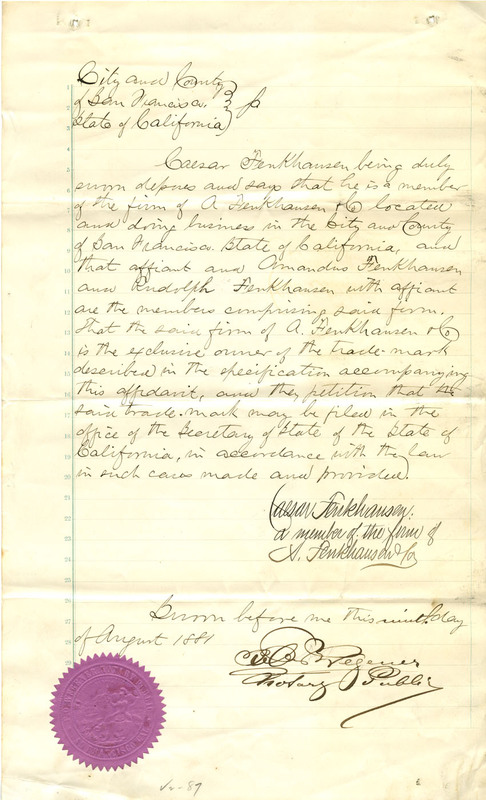 City and County
of San Francisco. } ss
State of California
Caesar Fenkhausen being duly
sworn deposes and says that he is a member
of the firm of A. Fenkhausen & Co located
and doing business in the City and County
of San Francisco. State of California, and
that affiant and Amandus Fenkhausen
and Rudolph Fenkhausen with affiant
are the members comprising said firm.
That the said firm of A. Fenkhausen & Co
is the exclusive owner of the trade-mark
described in the specification accompanying
this affidavit, and they petition that the
said trade-mark may be filed in the
office of the Secretary of State of the State of
California, in accordance with the law
in such cases made and provided.
Caesar Fenkhausen.
a member of the firm of
A. Fenkhausen & Co
Sworn before me this ninth day
of August 1881
Wegener
Notary Public